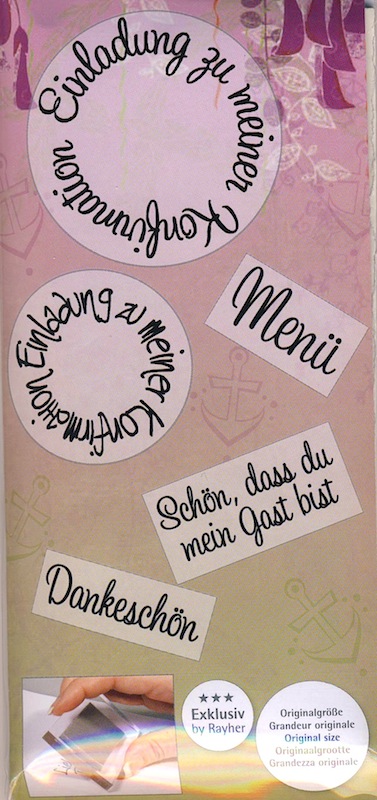 Einladung zu meiner Konfirmation
Menü
Einladung zu meiner Konfirmation
Schön, dass du
mein Gast bist
Dankeschön
★★★
Exklusiv
by Rayher
Originalgröße
Grandeur originale
Original size
Originaalgrootte
Grandezza originale